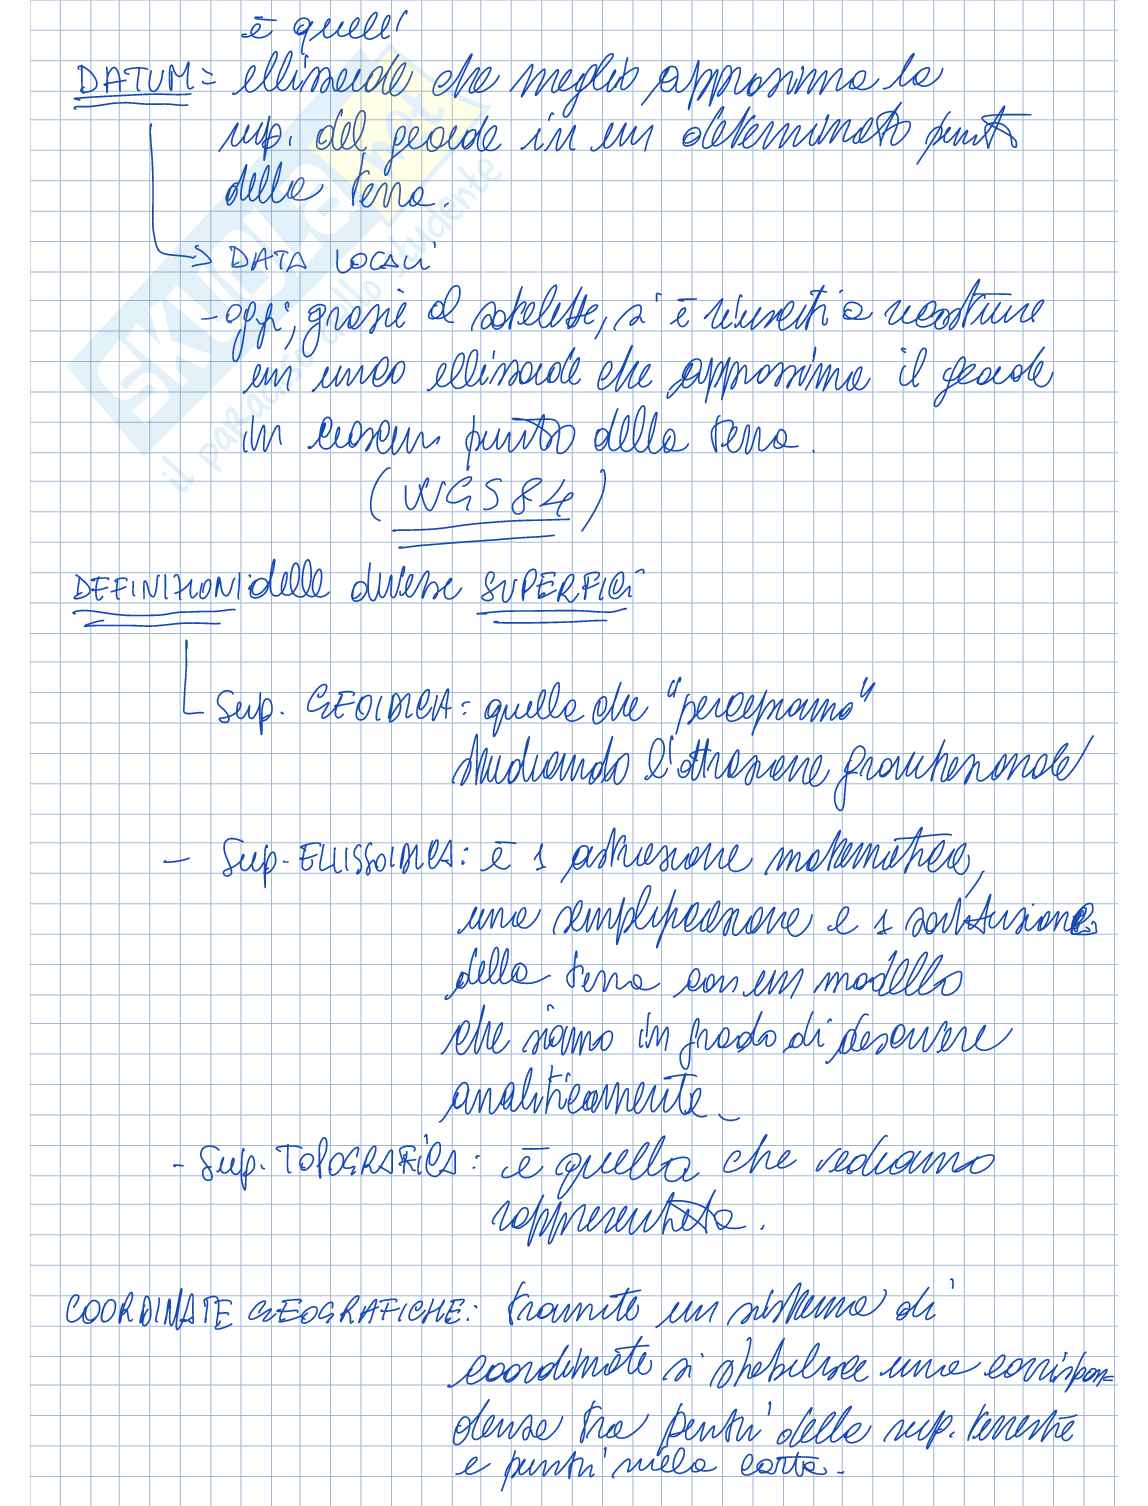 è quell'
DATUM = ellissoide che meglio approssima la
sup. del geoide in un determinato punto
della terra.
→ DATA LOCALI
- oggi, grazie al satellite, si è riusciti a ricostruire
un unico ellissoide che approssima il geoide
in ciascun punto della terra.
(WGS84)
DEFINIZIONI delle diverse SUPERFICI
Sup. GEOIDICA = quella che "percepiamo"
studiando l'attrazione gravitazionale
- Sup. ELLISSOIDICA: è 1 astrazione matematica,
una semplificazione e 1 sostituzione
della terra con un modello
che siamo in grado di descrivere
analiticamente
- Sup. TOPOGRAFICA: è quella che vediamo
rappresentata.
COORDINATE GEOGRAFICHE: tramite un sistema di
coordinate si stabilisce una corrispon=
denza tra punti della sup. terrestre
e punti nella carta.
SKUOLA.net
il paradiso dello studente